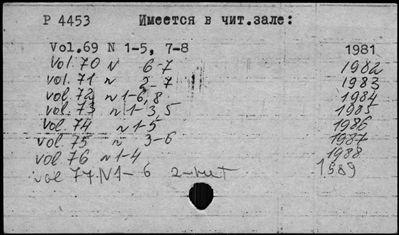 P 4453 Имеется в чит.зале:
Vol.69 N 1-5, 7-8 1981
Vol. 70 N 6-7 1982
vol. 71 n 2-7 1983
vol. 72 n 1-6, 8 1984
vol. 73 n 1-3, 5 1985
vol. 74 n 1-5 1986
vol. 75 n 3-6 1987
vol 76 n 1-4 1988
vol 77. N 1-6 1989